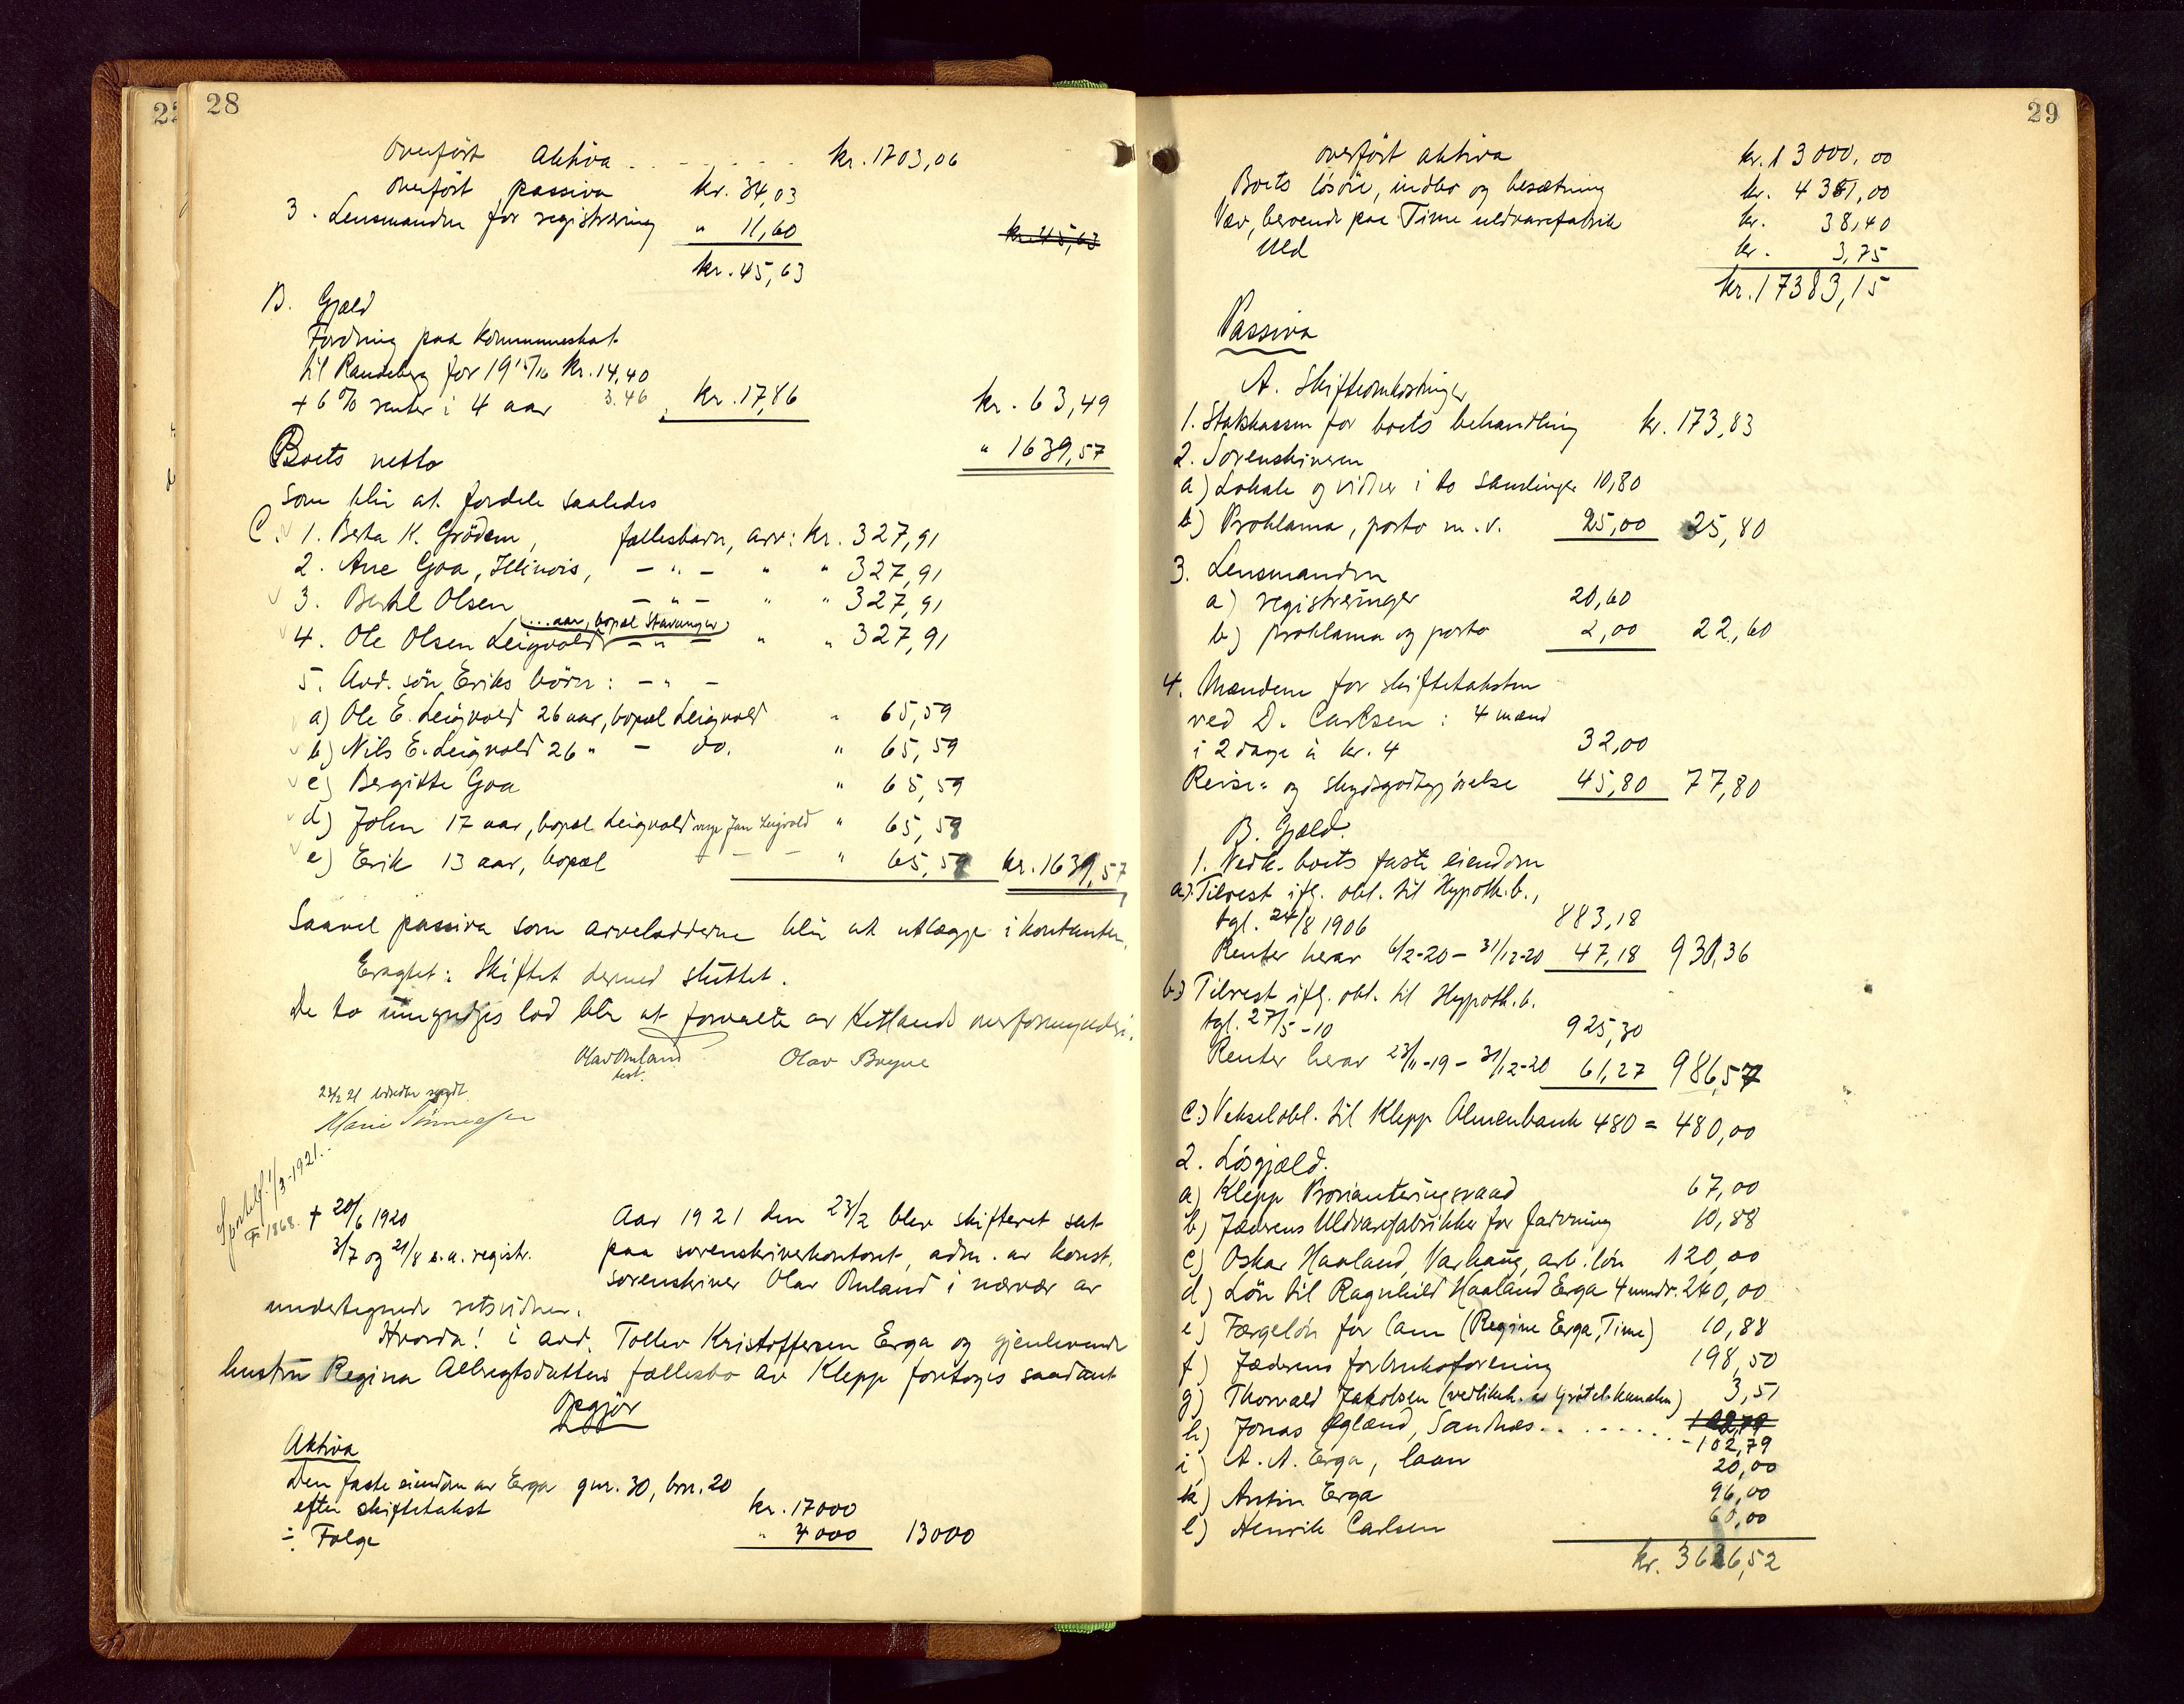 28
overført aktiva . . . . . . . kr. 1703,06
overført passiva kr. 34,03
3. Lensmanden for registrering " 11,60 kr. 45,63
kr. 45,63
B. Gjæld
Fordring paa kommuneskat
til Randeberg for 1915/16 kr. 14,40
+ 6% renter i 4 aar 3.46 kr. 17,86 kr. 63,49
Boets netto " 1639,57
som blir at fordele saaledes
C. 1. Berta K. Grödem, fællesbarn, arv: kr. 327,91
2. Ane Goa, Illinois, - " - " " 327,91
3. Bertil Olsen - " - " " 327,91
(... aar, bopæl Stavanger)
4. Ole Olsen Leigvold - " - " " 327,91
5. Avd. sön Eriks börn: - " -
a) Ole E. Leigvold 26 aar, bopæl Leigvold " 65,59
b) Nils E. Leigvold 26 " - do. " 65,59
c) Bergitte Goa " 65,59
d) John 17 aar, bopæl Leigvold verge Jan Leigvold " 65,58
e) Erik 13 aar, bopæl - - - " 65,58 kr. 1639,57
Saavel passiva som arveladderne blir at utlægge i kontanter.
Eragtet: Skiftet dermed sluttet.
De to umyndiges lod blir at forvalte av Hetlands overformynderi.
Olav Omland Olav Bryne
test.
23/2 21
Marie Tønnessen
1/3-1921.
1868.
† 20/6 1920 Aar 1921 den 23/2 blev skifteret sat
3/7 og 21/8 s.a. registr. paa sorenskriverkontoret, adm. av konst.
sorenskriver Olav Omland i nærvær av
undertegnede retsvidner.
Hvorda! i avd. Tollev Kristoffersen Erga og gjenlevende
hustru Regina Albregtsdatters fællesbo av Klepp foretoges saadant
Opgjör
Aktiva
Den faste eiendom av Erga gnr. 30, bnr. 20
efter skiftetakst kr. 17000
÷ Følge " 4000 13000
29
overført aktiva kr. 13000,00
Boets lösöre, indbo og besætning kr. 4341,00
Væv, beroende paa Time uldvarefabrik kr. 38,40
Uld kr. 3,75
kr. 17383,15
Passiva
A. Skifteomkostninger
1. Statskassen for boets behandling kr. 173,83
2. Sorenskriveren
a) Lokale og vidner i to samlinger 10,80
b) Proklama, porto m.v. 25,00 25,80
3. Lensmanden
a) registreringer 20,60
b) proklama og porto 2,00 22,60
4. Mændene for skiftetaksten
ved D. Carlsen: 4 mænd
i 2 dage à kr. 4 32,00
Reise- og skydsgodtgjörelse 45,80 77,80
B. Gjæld.
1. Vedk. boets faste eiendom
a) Tilrest ifg. obl. til Hypoth.b.,
tgl. 24/8 1906 883,18
Renter herav 6/2-20 - 31/12-20 47,18 930,36
b) Tilrest ifg. obl. til Hypoth.b.
tgl. 27/5-10 925,30
Renter herav 23/11-19 - 31/12-20 61,27 986,57
c) Vekselobl. til Klepp Almenbank 480 = 480,00
2. Lösgjæld.
a) Klepp Provianteringsraad 67,00
b) Jæderens Uldvarefabrikker for farvning 10,88
c) Oskar Haaland, Varhaug, arb.lön 120,00
d) Lön til Ragnhild Haaland Erga 4 mndr. 240,00
e) Færgelön for Cam (Regine Erga, Time) 10,88
f) Jæderens forbruksforening 198,50
g) Thorvald Jakobsen (vedlikeh. av Grötekanalen) 3,51
h) Jonas Øglænd, Sandnæs . . . . . . . 102,79
- 102,79
i) A. A. Erga, laan 20,00
k) Antin Erga 96,00
l) Henrik Carlsen 60,00
kr. 3626,52